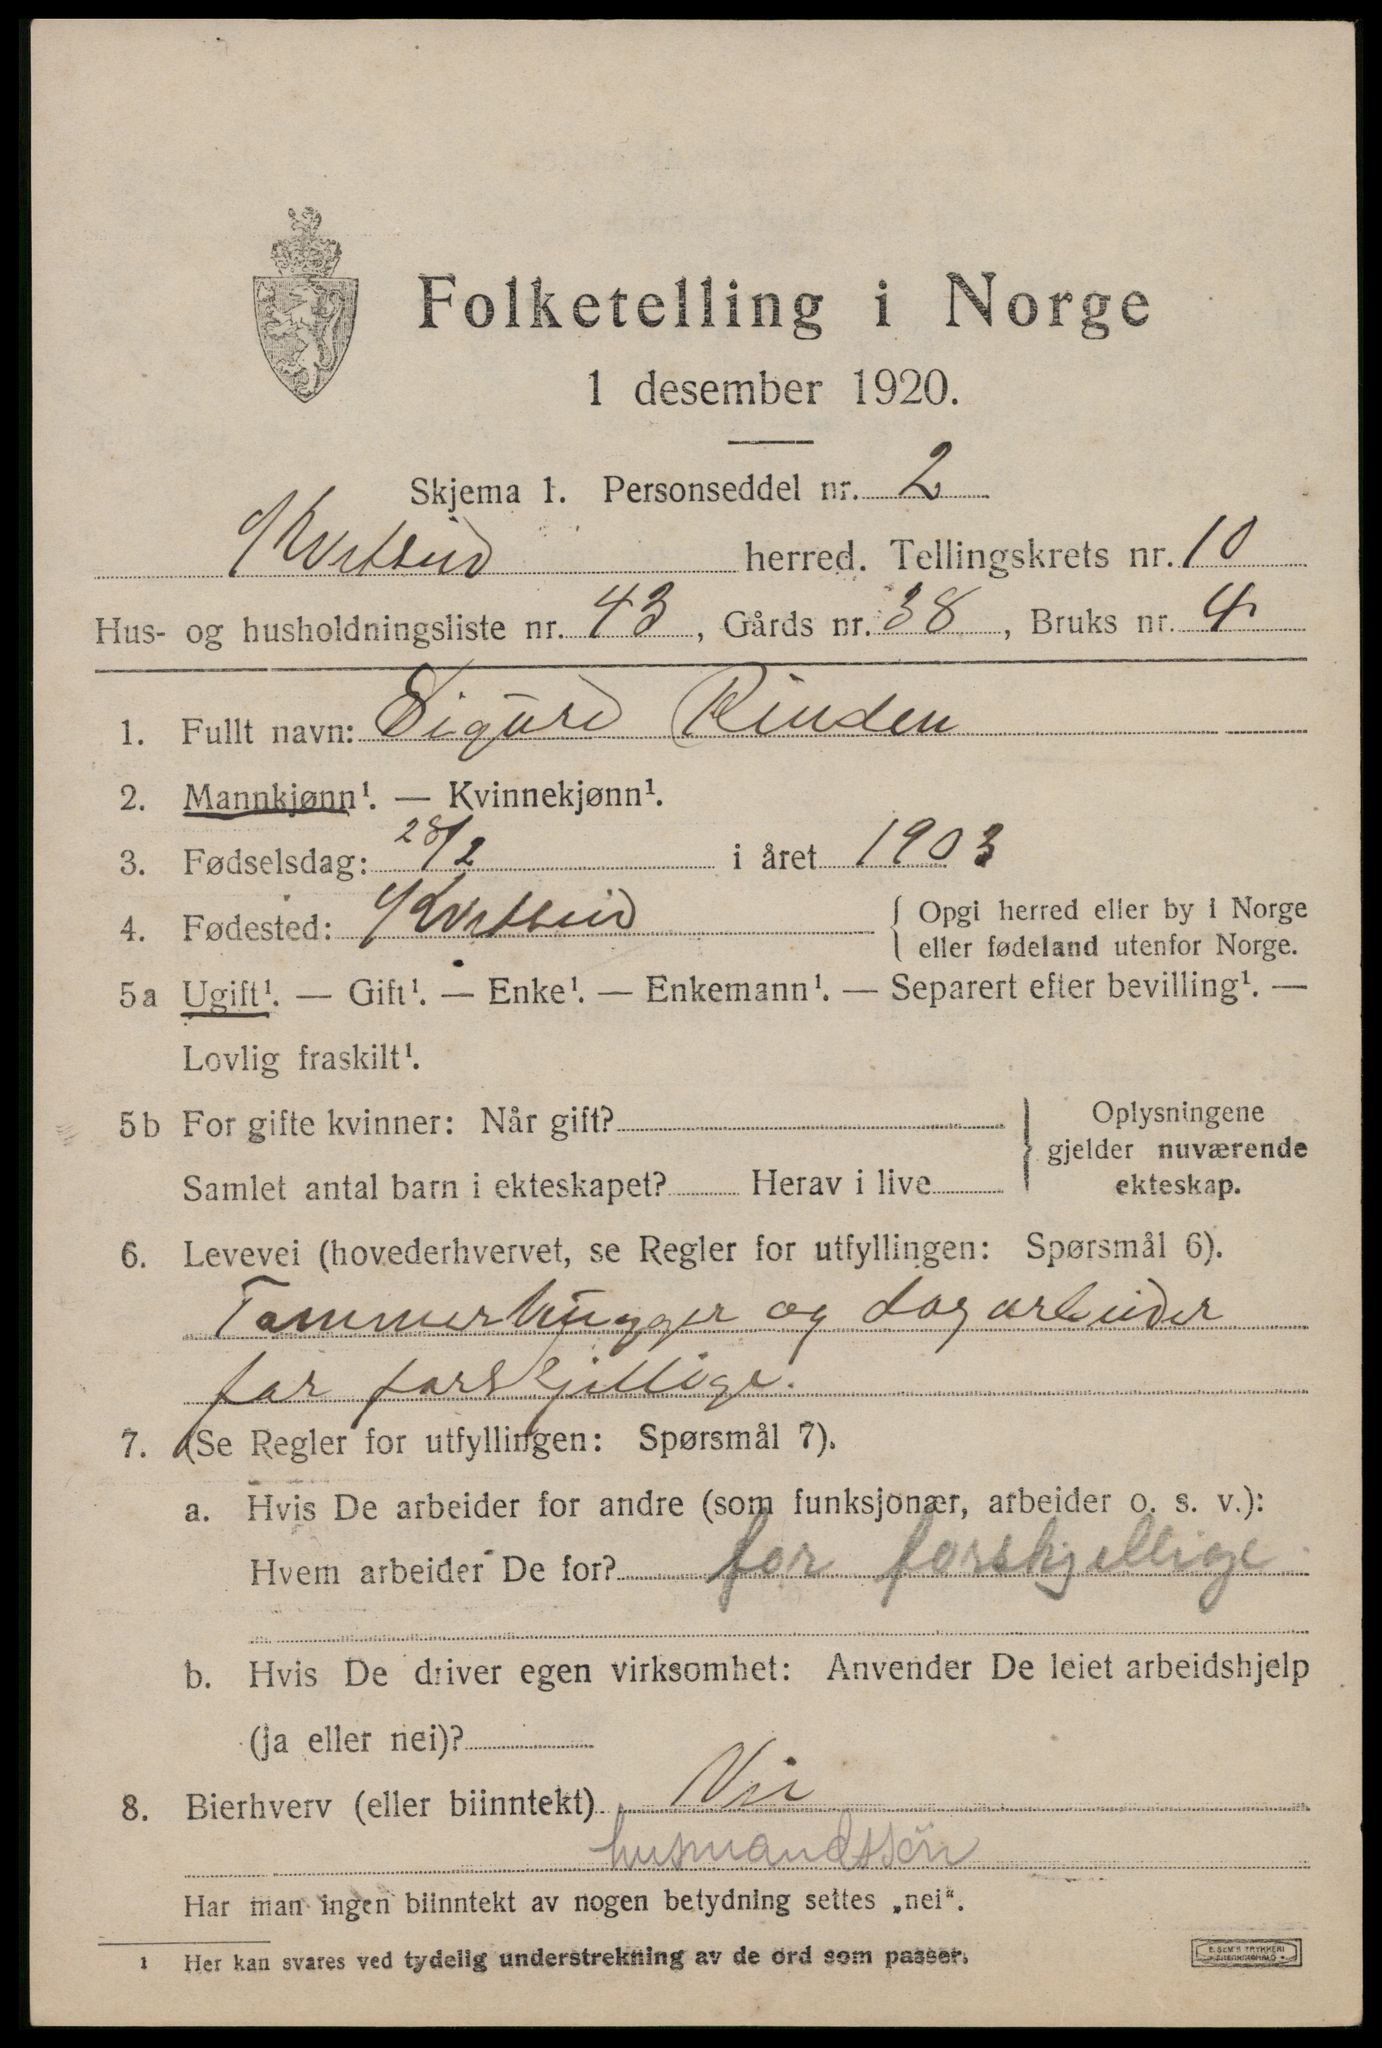 Folketelling i Norge
1 desember 1920.
Skjema 1. Personseddel nr. 2
Kvitseid herred. Tellingskrets nr. 10
Hus- og husholdningsliste nr. 43, Gårds nr. 38, Bruks nr. 4
1. Fullt navn: Sigurd Rinden
2. Mannkjønn¹. — Kvinnekjønn¹.
3. Fødselsdag: 28/2 i året 1903
4. Fødested: Kvitseid { Opgi herred eller by i Norge
eller fødeland utenfor Norge.
5a Ugift¹. — Gift¹. — Enke¹. — Enkemann¹. — Separert efter bevilling¹. —
Lovlig fraskilt¹.
5b For gifte kvinner: Når gift?
Samlet antal barn i ekteskapet? Herav i live
} Oplysningene
gjelder nuværende
ekteskap.
6. Levevei (hovederhvervet, se Regler for utfyllingen: Spørsmål 6).
Tømmerhugger og dagarbeider
for forskjellige.
7. (Se Regler for utfyllingen: Spørsmål 7).
a. Hvis De arbeider for andre (som funksjonær, arbeider o. s. v.):
Hvem arbeider De for? for forskjellige
b. Hvis De driver egen virksomhet: Anvender De leiet arbeidshjelp
(ja eller nei)?
8. Bierhverv (eller biinntekt) Nei
husmandssøn
Har man ingen biinntekt av nogen betydning settes „nei“.
1 Her kan svares ved tydelig understrekning av de ord som passer.
E. SEM'S TRYKKERI
FREDRIKSHALD